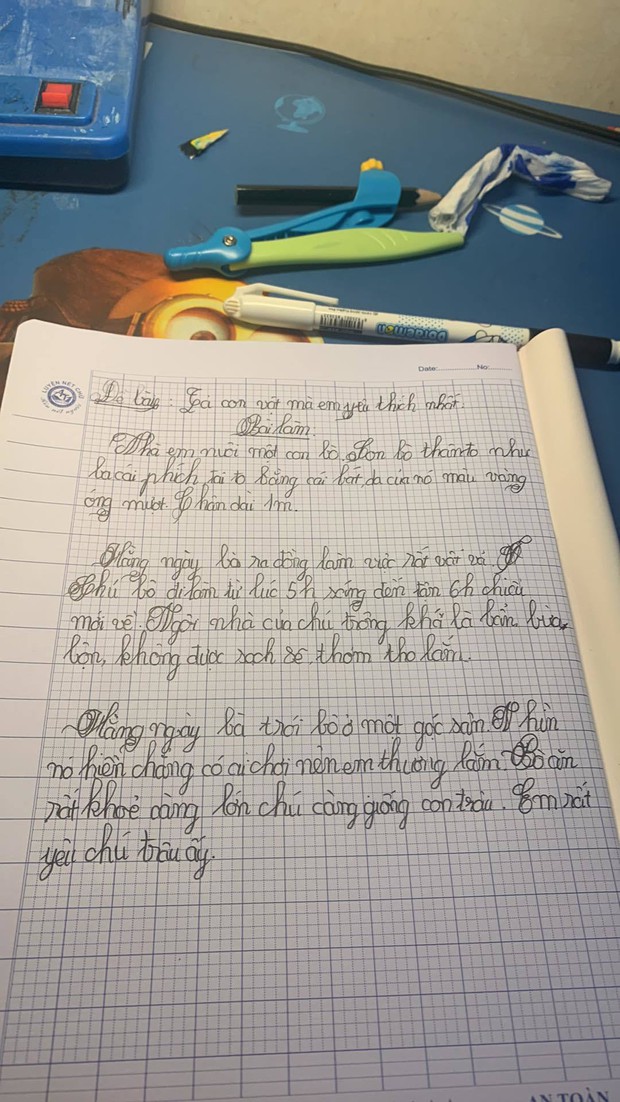 Date: No:
LUYỆN NÉT CHỮ
Đề bài: Tả con vật mà em yêu thích nhất.
Bài làm
Nhà em nuôi một con bò. Con bò thânto như
là cái phích, tai to bằng cái bát, da của nó màu vàng
óng mượt. Chân dài 1m.
Hằng ngày bò ra đồng làm việc rất vất vả.
Chú bò đi làm từ lúc 5h sáng đến tân 6h chiều
mới về. Ngôi nhà của chú trông khá là bẩn, bừa
bộn, không được sạch sẽ, thơm tho lắm.
Hằng ngày bà trói bò ở một góc sân. Nhìn
nó hiền chẳng có ai chơi nên em thương lắm. Bò ăn
rất khoẻ càng lớn chú càng giống con trâu. Em rất
yêu chú trâu ấy.
Doraemon
AN TOÀN